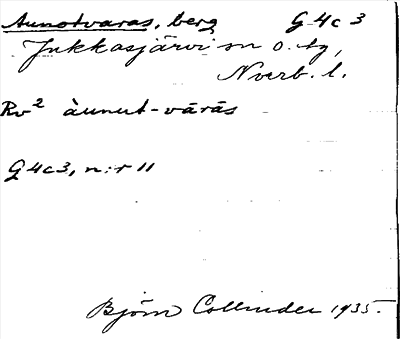 Aunotvaras, berg G 4c 3
Jukkasjärvi sn o. tg,
Nverb. l.
Rv² àunut-vārās
G 4c3, n:r 11
Björn Collinder 1935.